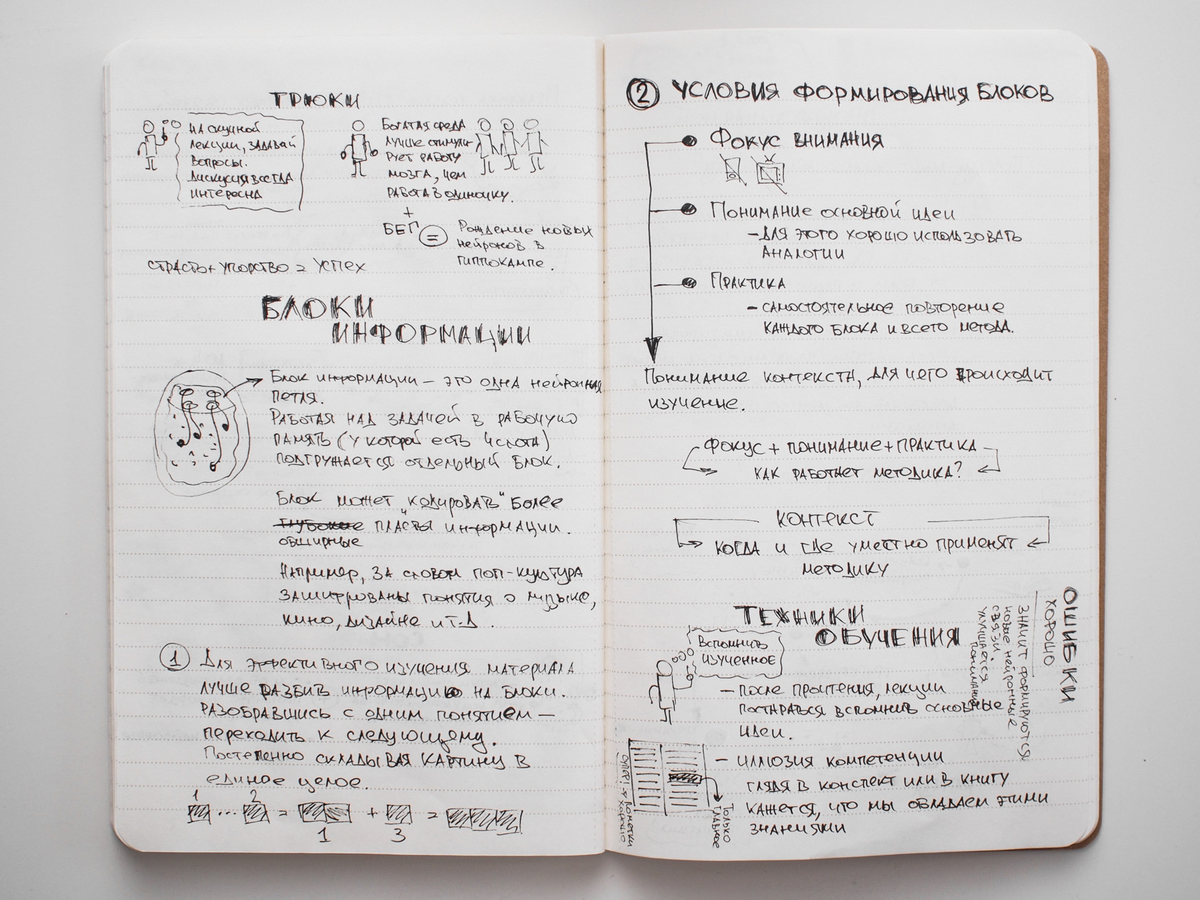 ТРЮКИ
НА СКУЧНОЙ
ЛЕКЦИИ, ЗАДАВАЙ
ВОПРОСЫ.
ДИСКУСИЯ ВСЕГДА
ИНТЕРЕСНА
БОГАТАЯ СРЕДА
ЛУЧШЕ СТИМУЛИ-
РУЕТ РАБОТУ
МОЗГА, ЧЕМ
РАБОТА В ОДИНОЧКУ.
+
БЕГ =
РОЖДЕНИЕ НОВЫХ
НЕЙРОНОВ В
ГИППОКАМПЕ.
СТРАСТЬ + УПОРСТВО = УСПЕХ
БЛОКИ
ИНФОРМАЦИИ
БЛОК ИНФОРМАЦИИ – ЭТО ОДНА НЕЙРОННАЯ
ПЕТЛЯ.
РАБОТАЯ НАД ЗАДАЧЕЙ В РАБОЧУЮ
ПАМЯТЬ (У КОТОРОЙ ЕСТЬ 4 СЛОТА)
ПОДГРУЖАЕТСЯ ОТДЕЛЬНЫЙ БЛОК.
БЛОК МОЖЕТ „КОДИРОВАТЬ" БОЛЕЕ
ГЛУБОКИЕ ПЛАСТЫ ИНФОРМАЦИИ.
ОБШИРНЫЕ
НАПРИМЕР, ЗА СЛОВОМ ПОП-КУЛЬТУРА
ЗАШИФРОВАНЫ ПОНЯТИЯ О МУЗЫКЕ,
КИНО, ДИЗАЙНЕ И Т.Д.
1 ДЛЯ ЭФФЕКТИВНОГО ИЗУЧЕНИЯ МАТЕРИАЛА
ЛУЧШЕ РАЗБИВ ИНФОРМАЦИЮ НА БЛОКИ.
РАЗОБРАВШИСЬ С ОДНИМ ПОНЯТИЕМ –
ПЕРЕХОДИТЬ К СЛЕДУЮЩЕМУ.
ПОСТЕПЕННО СКЛАДЫВАЯ КАРТИНУ В
ЕДИНОЕ ЦЕЛОЕ.
1 ... 2 = + =
1 3
2 УСЛОВИЯ ФОРМИРОВАНИЯ БЛОКОВ
ФОКУС ВНИМАНИЯ
ПОНИМАНИЕ ОСНОВНОЙ ИДЕИ
– ДЛЯ ЭТОГО ХОРОШО ИСПОЛЬЗОВАТЬ
АНАЛОГИИ
ПРАКТИКА
– САМОСТОЯТЕЛЬНОЕ ПОВТОРЕНИЕ
КАЖДОГО БЛОКА И ВСЕГО МЕТОДА.
ПОНИМАНИЕ КОНТЕКСТА, ДЛЯ ЧЕГО ПРОИСХОДИТ
ИЗУЧЕНИЕ.
ФОКУС + ПОНИМАНИЕ + ПРАКТИКА
КАК РАБОТАЕТ МЕТОДИКА?
КОНТЕКСТ
КОГДА И ГДЕ УМЕСТНО ПРИМЕНЯТ
МЕТОДИКУ
ТЕХНИКИ
ОБУЧЕНИЯ
ВСПОМНИТЬ
ИЗУЧЕННОЕ
– ПОСЛЕ ПРОЧТЕНИЯ, ЛЕКЦИИ
ПОСТАРАТЬСЯ ВСПОМНИТЬ ОСНОВНЫЕ
ИДЕИ.
– ИЛЛЮЗИЯ КОМПЕТЕНЦИИ
ГЛЯДЯ В КОНСПЕКТ ИЛИ В КНИГУ
КАЖЕТСЯ, ЧТО МЫ ОБЛАДАЕМ ЭТИМИ
ЗНАНИЯМИ
ПОМЕТКИ
ХОРОШО
ТОЛЬКО
ГЛАВНОЕ
ОШИБКИ
ХОРОШО
ЗНАЧИТ ФОРМИРУЮТСЯ
НОВЫЕ НЕЙРОННЫЕ
СВЯЗИ
УЛУЧШАЕТСЯ
ПОНИМАНИЕ